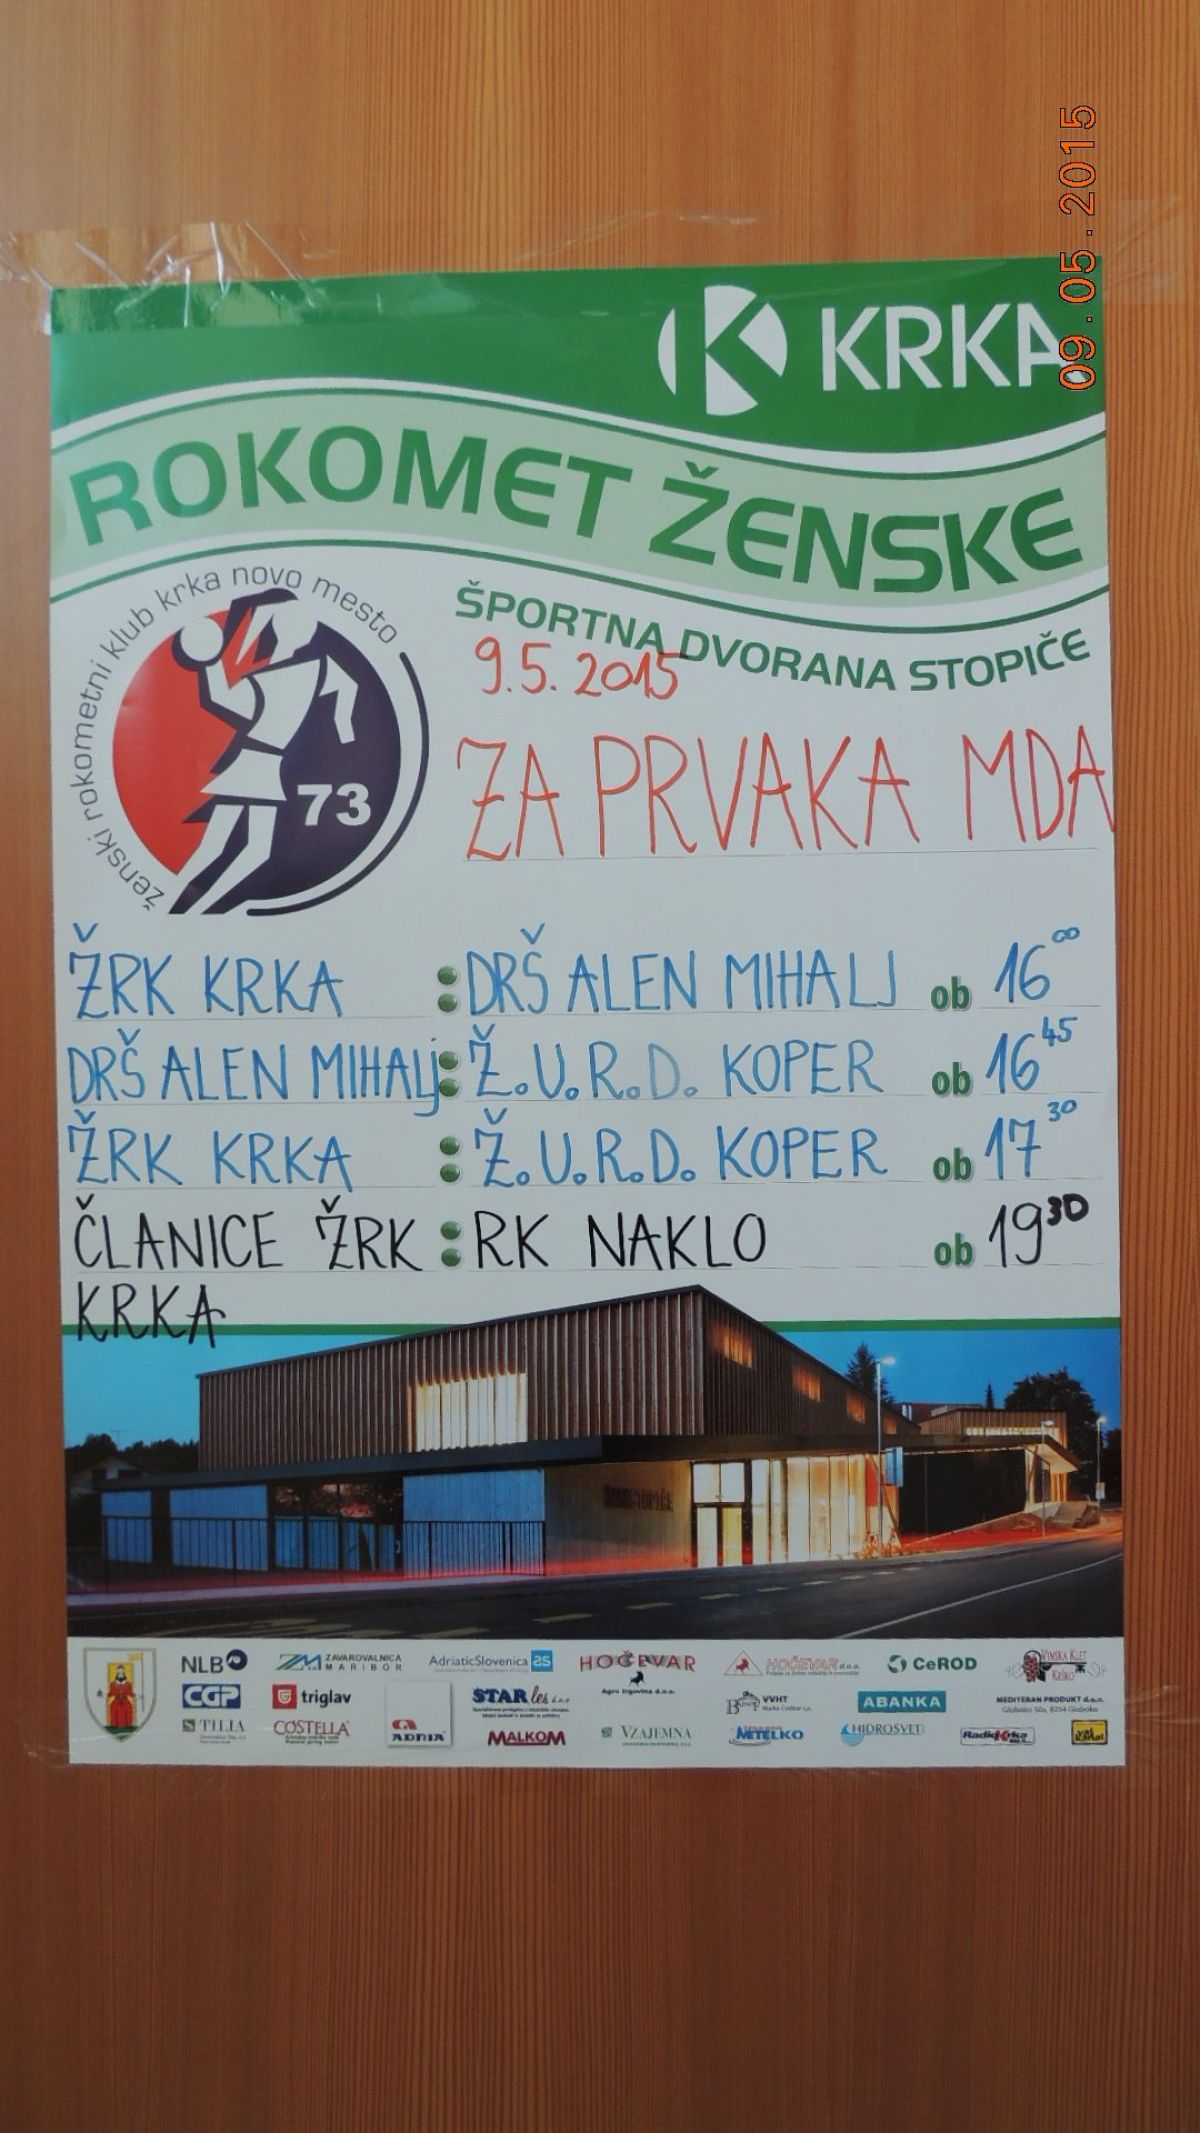 09.05.2015
KRKA
ROKOMET ŽENSKE
ženski rokometni klub krka novo mesto
73
ŠPORTNA DVORANA STOPIČE
9.5.2015
ZA PRVAKA MDA
ŽRK KRKA : DRŠ ALEN MIHALJ ob 16 00
DRŠ ALEN MIHALJ : Ž.U.R.D. KOPER ob 16 45
ŽRK KRKA : Ž.U.R.D. KOPER ob 17 30
ČLANICE ŽRK : RK NAKLO ob 19 30
KRKA
NLB ZM ZAVAROVALNICA MARIBOR AdriaticSlovenica HOČEVAR HOČEVAR d.o.o. CeROD VINSKA KLET KRŠKO
Agro trgovina d.o.o.
CGP triglav STAR les d.o.o. VVHT ABANKA MEDITERAN PRODUKT d.o.o.
Globoko 30a, 8254 Globoko
TILIA COSTELLA ADRIA MALKOM VZAJEMNA METELKO HIDROSVET Radio Krka vaš kanal